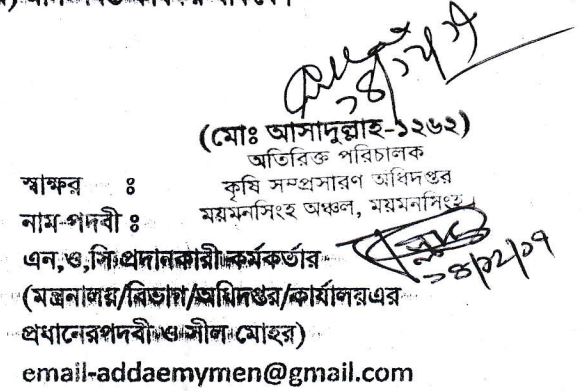 ১৪/১২/১৭
(মোঃ আসাদুল্লাহ-১২৬২)
অতিরিক্ত পরিচালক
কৃষি সম্প্রসারণ অধিদপ্তর
ময়মনসিংহ অঞ্চল, ময়মনসিংহ।
স্বাক্ষর ঃ
নাম-পদবী ঃ
এন,ও,সি প্রদানকারী কর্মকর্তার
১৪/১২/১৭
(মন্ত্রনালয়/বিভাগ/অধিদপ্তর/কার্যালয়এর
প্রধানেরপদবী ও সীল মোহর)
email-addaemymen@gmail.com